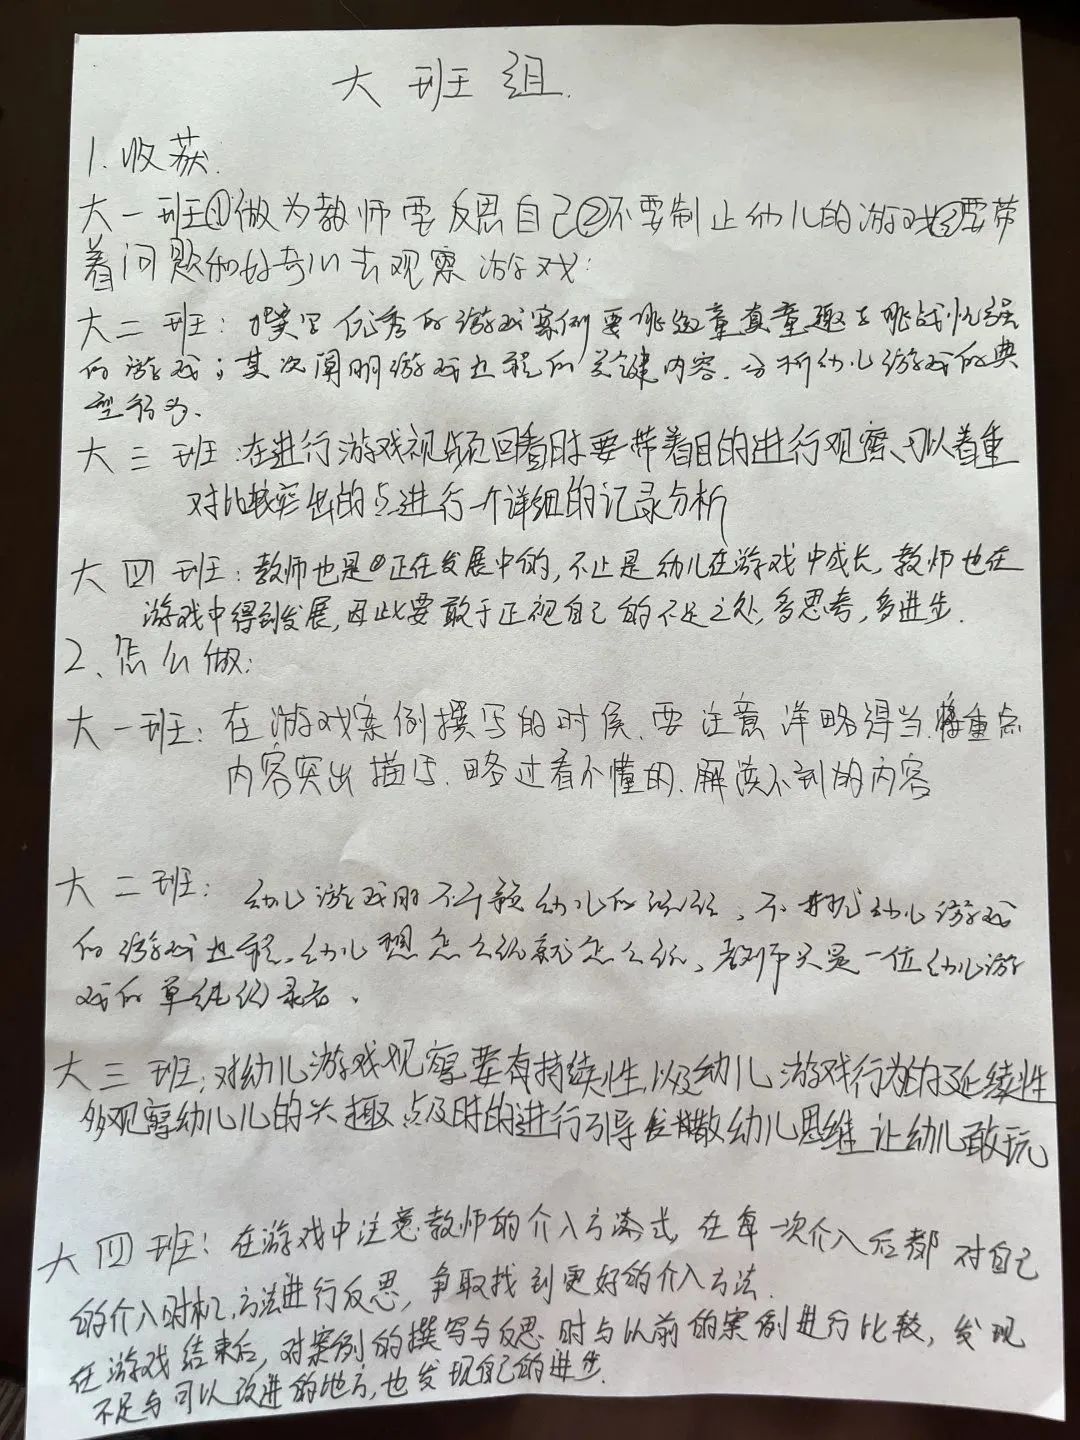 大班组.
1.收获:
大一班①做为教师要反思自己②不要制止幼儿的游戏③要带
着问题和好奇心去观察游戏:
大二班:撰写优秀的游戏案例要挑选童真童趣与挑战性强
的游戏;其次阐明游戏过程的关键内容.分析幼儿游戏的典
型行为.
大三班:在进行游戏视频回看时要带着目的进行观察、可以着重
对比较突出的点进行一个详细的记录分析
大四班:教师也是正在发展中的,不止是幼儿在游戏中成长,教师也在
游戏中得到发展,因此要敢于正视自己的不足之处,多思考,多进步.
2、怎么做:
大一班:在游戏案例撰写的时侯.要注意详略得当.将重点
内容突出描写.略过看不懂的.解读不到的内容
大二班:幼儿游戏时不干预幼儿的游戏、不打扰幼儿游戏
的游戏过程.幼儿想怎么玩就怎么玩、教师只是一位幼儿游
戏的单纯记录者.
大三班:对幼儿游戏观察要有持续性,以及幼儿游戏行为的延续性
多观察幼儿儿的兴趣点及时的进行引导发散幼儿思维让幼儿敢玩
大四班:在游戏中注意教师的介入方式,在每一次介入后都对自己
的介入时机、方法进行反思,争取找到更好的介入方法.
在游戏结束后,对案例的撰写与反思时与以前的案例进行比较,发现
不足与可以改进的地方,也发现自己的进步.